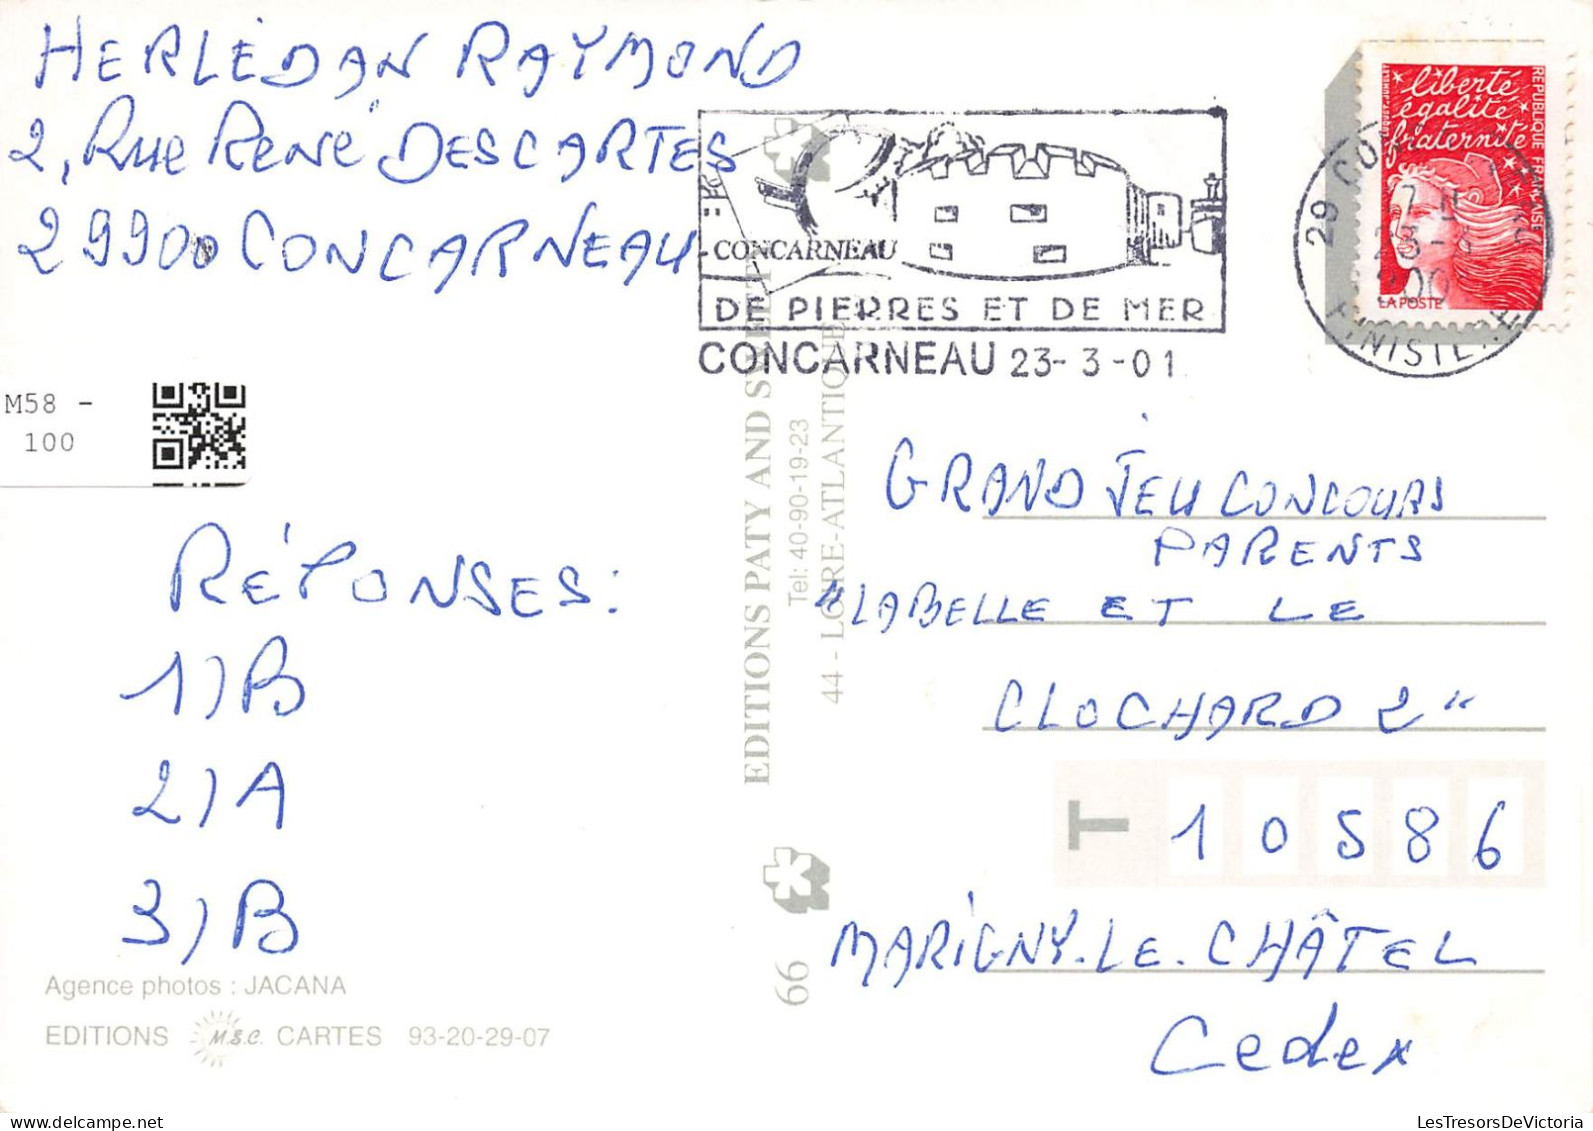 HERLÉDAN RAYMOND
2, Rue René DESCARTES
29900 CONCARNEAU
CONCARNEAU
DE PIERRES ET DE MER
CONCARNEAU 23-3-01
liberté
égalité
fraternité
RÉPUBLIQUE FRANÇAISE
LA POSTE
M58 -
100
RÉPONSES:
1) B
2) A
3) B
Agence photos : JACANA
EDITIONS M.S.C. CARTES 93-20-29-07
EDITIONS PATY AND SWEET
Tel: 40-90-19-23
44 - LOIRE-ATLANTIQUE
66
GRAND JEU CONCOURS
PARENTS
"LABELLE ET LE
CLOCHARD 2"
T 10586
MARIGNY.LE.CHÂTEL
Cedex
LesTresorsDeVictoria.com